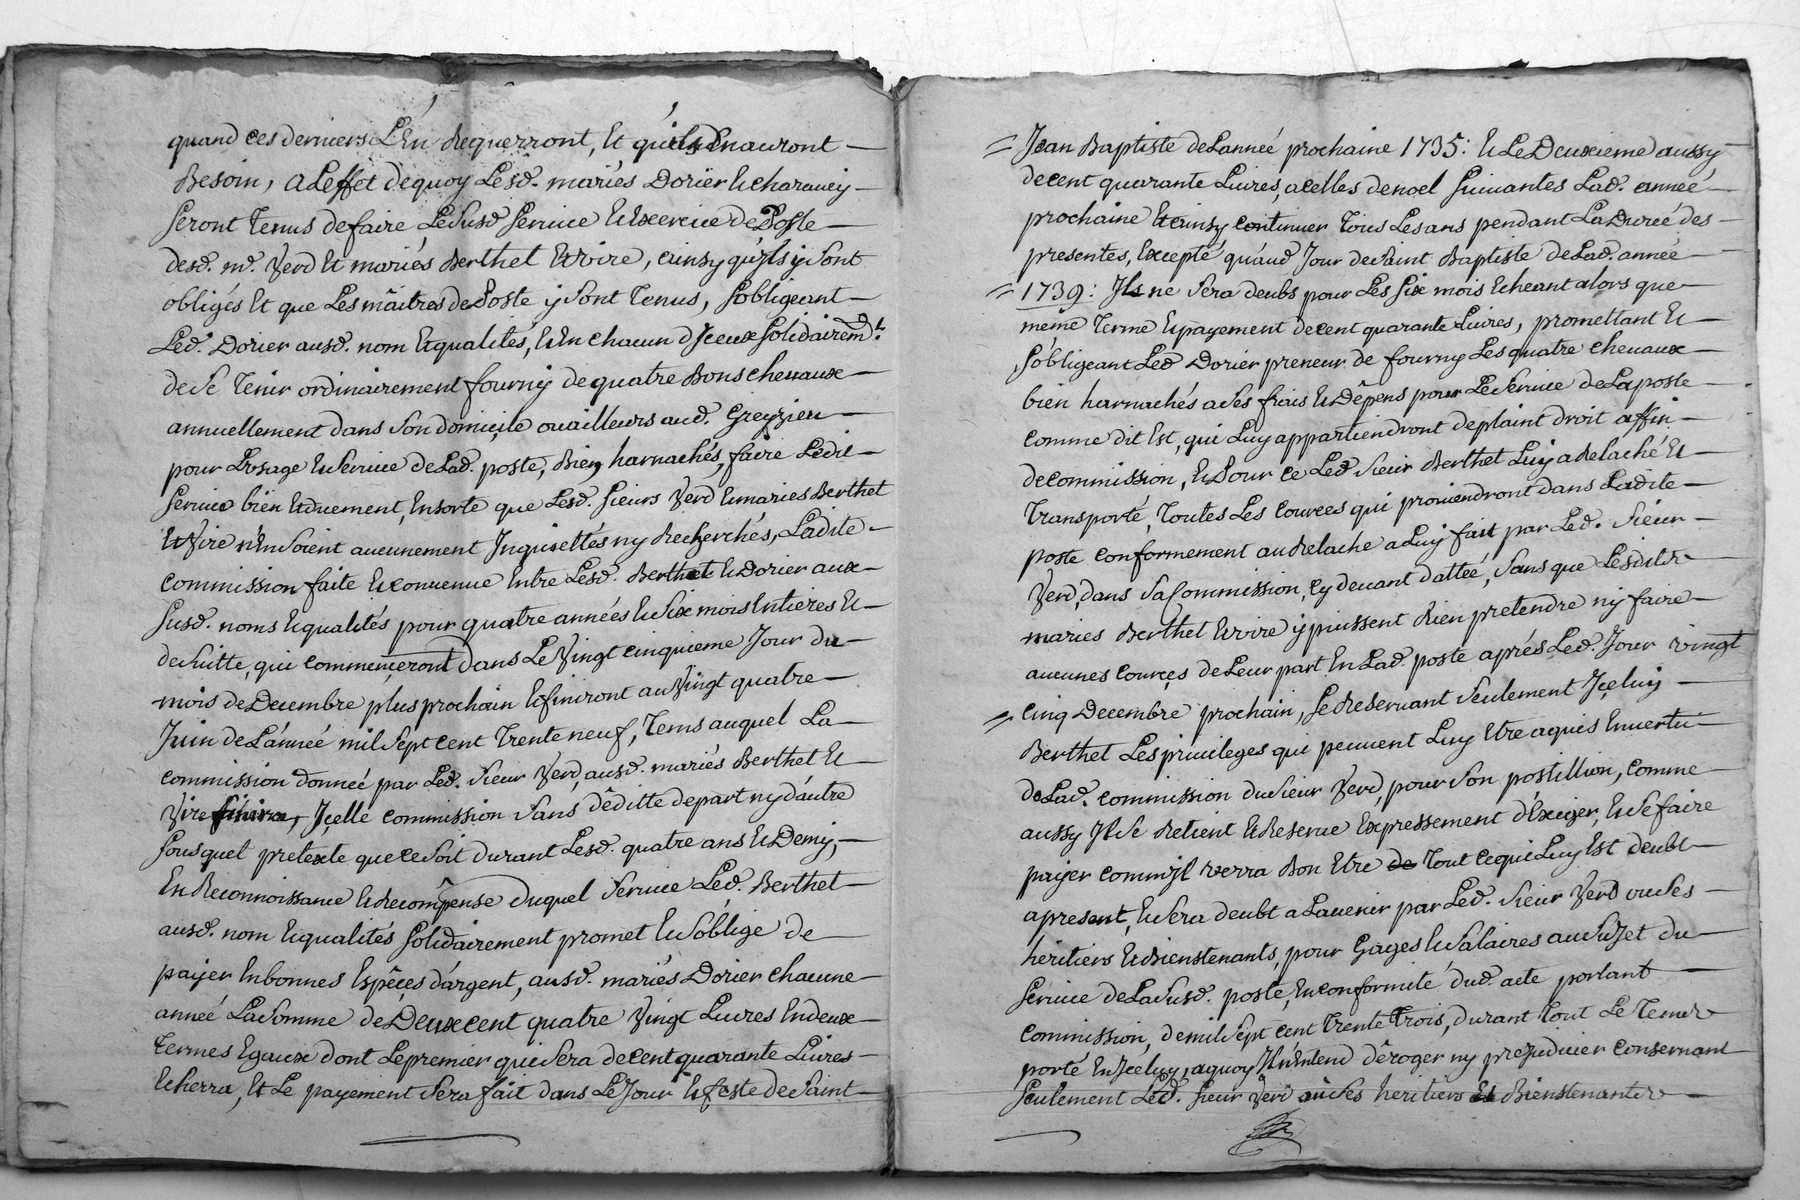 quand ces derniers L'én Requerront, Et qu'ils Enauront —
Besoin, a Leffet dequoy Lesd. mariés Dorier Et charauey —
Seront Tenus defaire Lesusd Seruice Et Exercice de Poste —
desd. mr. Verd Et mariés Berthet Et voire, ainsy qu'ils y Sont
obligés Et que Les mâitres de Poste y Sont Tenus, Sobligeant —
Led. Dorier ausd. nom Et qualités, Et En chacun d'Jceux Solidairemt.
de Se Tenir ordinairement fourny de quatre Bons cheuaux —
annuellement dans Son domicile ou ailleurs aud. Greyzieu —
pour L'Usage Et Seruice de Lad. poste, Bien harnachés, faire Ledit —
Seruice bien Et duement, Ensorte que Lesd. Sieurs Verd Et maries Berthet
Et Vire n'En Soient aucunement Jnquiettés ny Recherchés, Ladite —
commission faite Et conuenue Entre Lesd. Berthet Et Dorier aux —
Susd. noms Et qualités pour quatre années Et Six mois Entieres Et —
de Suitte, qui commenceront dans Le Vingt cinquieme Jour du —
mois de Decembre plus prochain Et finiront au Vingt quatre —
Juin de L'année mil Sept cent Trente neuf, Tems auquel La —
commission donneé par Led. Sieur Verd, ausd. mariés Berthet Et —
Vire finira, Jcelle commission Sans déditte de part ny d'autre
Sous quel pretexte que ce Soit durant Lesd. quatre ans Et Demy, —
En Reconnoissance Et Recompense duquel Seruice Led. Berthet —
ausd. nom Et qualités Solidairement promet Et S'oblige de —
payer En bonnes Espéces d'argent, ausd. mariés Dorier chacune —
anneé La Somme de Deux cent quatre Vingt Liures En deux —
Termes Egaux dont Le premier qui Sera de cent quarante Liures —
Echerra, Et Le payement Sera fait dans Le Jour Et feste de Saint —
Jean Baptiste de L'anneé prochaine 1735: Et Le Deuxieme aussy
de cent quarante Liures, a celles de noel Suiuantes Lad. anneé —
prochaine Et ainsy continuer Tous Les ans pendant La Dureé des —
presentes, Excepté qu'aud Jour de Saint Baptiste de Lad. année —
1739: Jls ne Sera deubs pour Les Six mois Echeant alors que —
même Terme Et payement de cent quarante Liures, promettant Et —
S'obligeant Led Dorier preneur de fourny Les quatre cheuaux —
bien harnachés a Ses frais Et Dépens pour Le Seruice de La poste —
comme dit Est, qui Luy appartiendront de plaint droit affin —
de commission, Et Pour ce Led Sieur Berthet Luy a Relaché Et —
Transporté, Toutes Les Cources qui prouiendront dans Ladite —
poste conformement au Relache a Luy fait par Led. Sieur —
Verd, dans Sa Commission, cy deuant dattée, Sans que Lesdits
maries Berthet Et voire y puissent Rien pretendre ny faire —
aucunes cources de Leur part En Lad. poste aprés Led. Jour vingt
cinq Decembre prochain, Se Reseruant Seulement Jceluy —
Berthet Les priuileges qui peuuent Luy Etre aquis En uertu
de Lad. commission du Sieur Verd, pour Son postillion, comme
aussy Jl Se Retient Et Reserue Expressement d'Exiger, Et Se faire
payer comm'Jl verra Bon Etre de Tout ce qui Luy Est deubt
a present, Et Sera deubt a L'auenir par Led. Sieur Verd ou Ses —
héritiers Et Bienstenants, pour Gages Et Salaires au Sujet du —
Seruice de La Susd. poste, En conformité dud. acte portant —
commission, de mil Sept cent Trente Trois, durant Tout Le Tems
porté En Jceluy, a quoy Jl n'Entend déroger ny prejudicier conseruant
Seulement Led. Sieur Verd ou Ses heritiers Et Bienstenants —